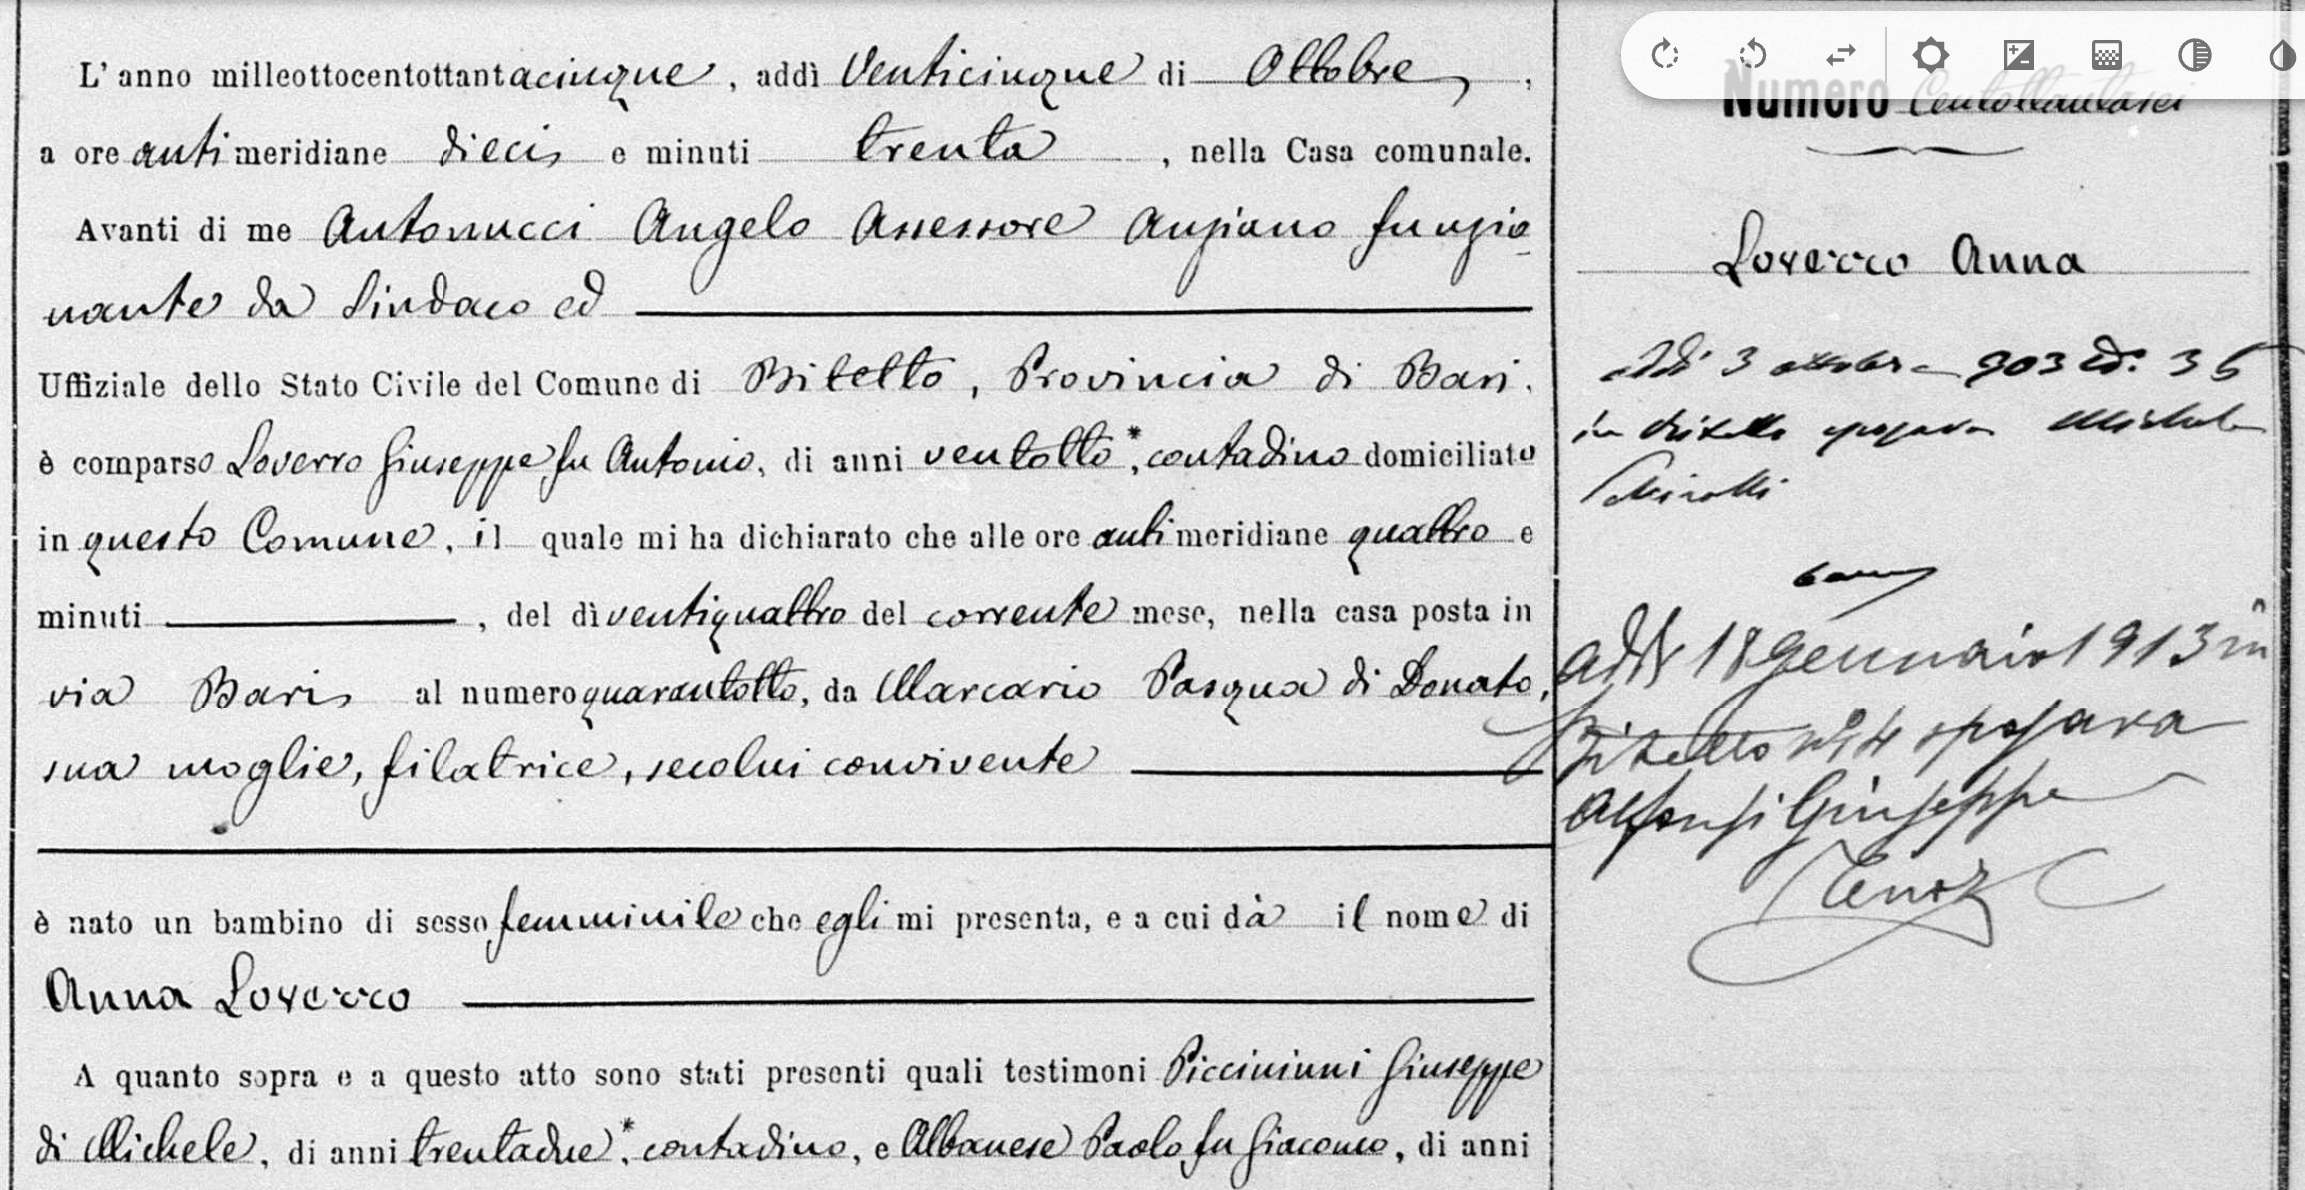 L'anno milleottocentottantacinque, addì Venticinque di Ottobre,
a ore antimeridiane dieci e minuti trenta, nella Casa comunale.
Avanti di me Antonucci Angelo Assessore Anziano funzio
nante da Sindaco ed
Uffiziale dello Stato Civile del Comune di Bitetto, Provincia di Bari.
è comparso Loverro Giuseppe fu Antonio, di anni ventotto*, contadino domiciliato
in questo Comune, il quale mi ha dichiarato che alle ore antimeridiane quattro e
minuti , del dì ventiquattro del corrente mese, nella casa posta in
via Bari al numero quarantotto, da Marcario Pasqua di Donato,
sua moglie, filatrice, secolui convivente
è nato un bambino di sesso femminile che egli mi presenta, e a cui dà il nome di
Anna Loverro
A quanto sopra e a questo atto sono stati presenti quali testimoni Piccininni Giuseppe
di Michele, di anni trentadue*, contadino, e Albanese Paolo fu Giacomo, di anni
Numero Centottantasei
Loverro Anna
Addì 3 ottobre 903 36
in Bitetto sposava Michele
Addì 18 Gennaio 1913 in
Bitetto n° 4 sposava
Alfonsi Giuseppe